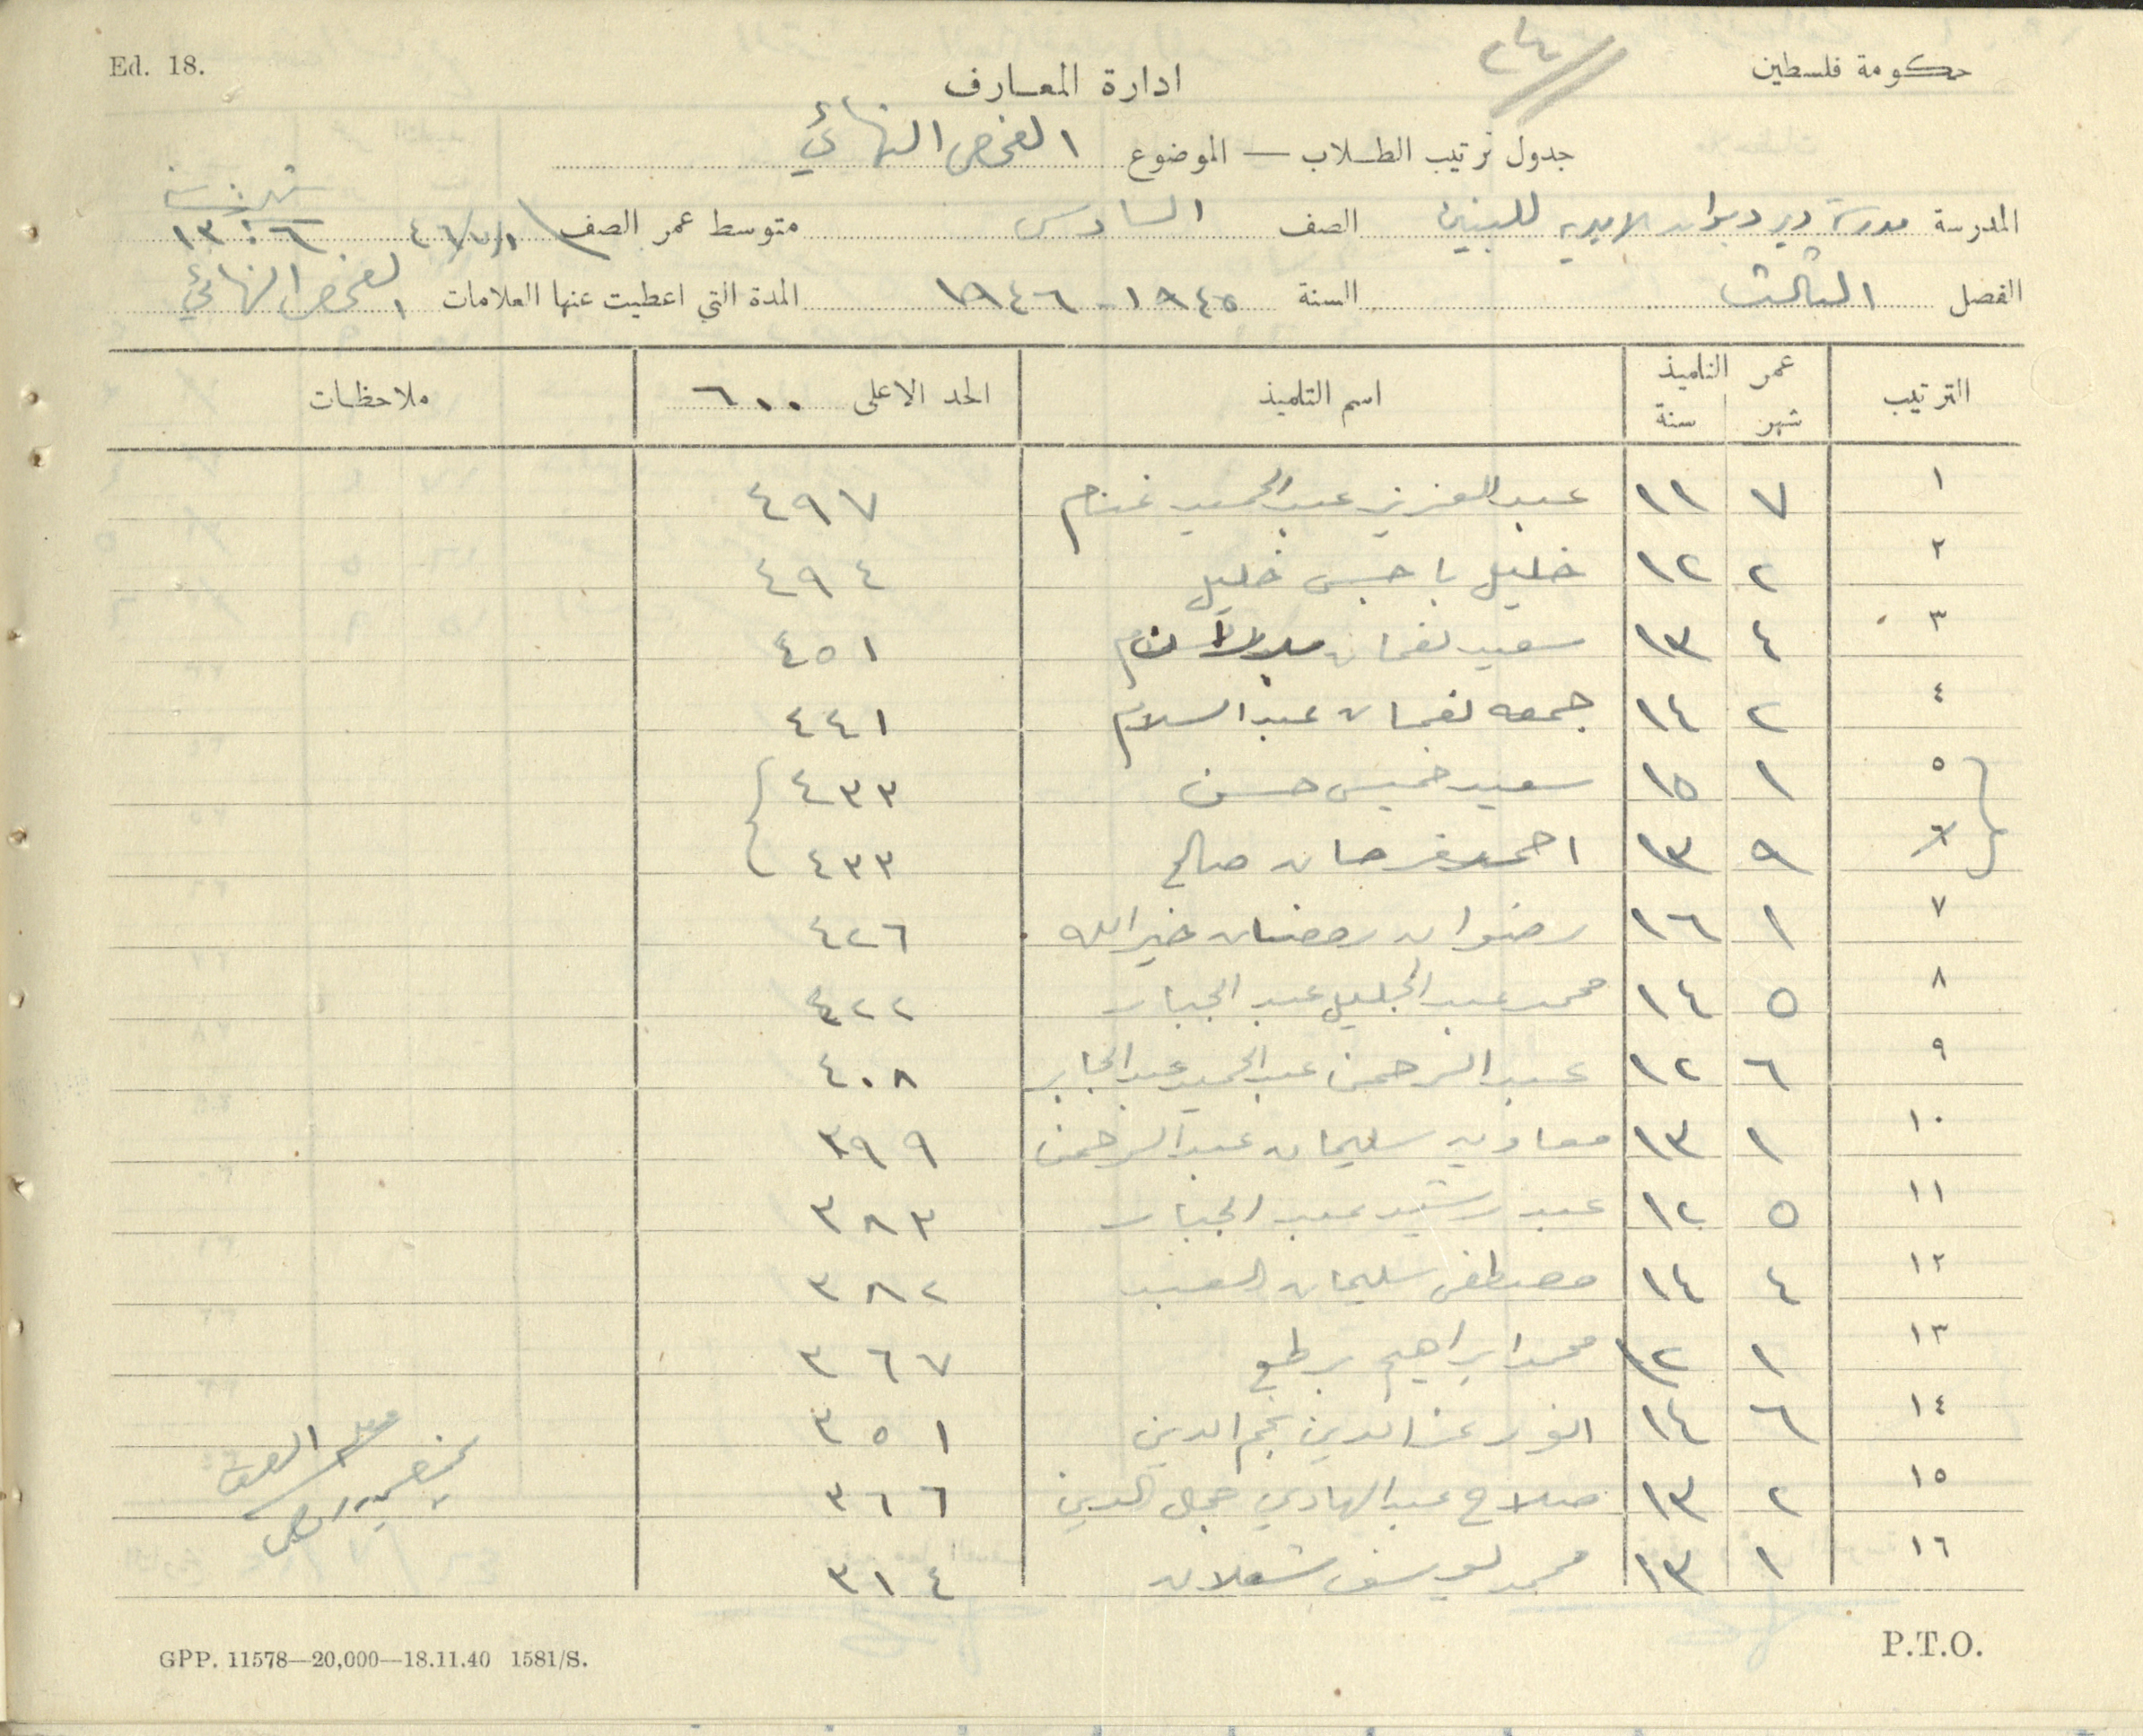 Ed. 18.
حكومة فلسطين
ادارة المعارف
جدول ترتيب الطلاب — الموضوع الفحص النهائي
المدرسة مدرسة دير ديوان الاميرية للبنين الصف السادس متوسط عمر الصف ١/٧/٤٦ شهر سنة ٦ : ١٣
الفصل الثالث السنة ١٩٤٥ - ١٩٤٦ المدة التي اعطيت عنها العلامات الفحص النهائي
الترتيب عمر التلميذ اسم التلميذ الحد الاعلى ٦٠٠ ملاحظات
شهر سنة
١ ٧ ١١ عبد العزيز عبد الحميد غنام ٤٩٧
٢ ٢ ١٢ خليل باجس خليل ٤٩٤
٣ ٤ ١٣ سعيد نعمان ٤٥١
٤ ٢ ١٤ جمعه نعمان عبد السلام ٤٤١
٥ ١ ١٥ سعيد خميس حسن ٤٣٣
٦ ٩ ١٣ احمد فرحان صالح ٤٣٣
٧ ١ ١٦ رضوان رمضان خير الله ٤٢٦
٨ ٥ ١٤ محمد عبد الجليل عبد الجبار ٤٢٢
٩ ٦ ١٢ عبد الرحمن عبد الحميد عبد الجابر ٤٠٨
١٠ ١ ١٣ معاويه سليمان عبد الرحمن ٣٩٩
١١ ٥ ١٢ عبد رشيد عبد الجبار ٣٨٣
١٢ ٤ ١٤ مصطفى سليمان العبد ٣٨٢
١٣ ١ ١٢ محمد ابراهيم ٣٦٧
١٤ ٦ ١٤ انور عز الدين نجم الدين ٣٥١
١٥ ٢ ١٣ صلاح عبد الهادي الدين ٣٦٦
١٦ ١ ١٣ محمد يوسف شعلان ٣١٤
معلم الصف
GPP. 11578—20,000—18.11.40 1581/S.
P.T.O.